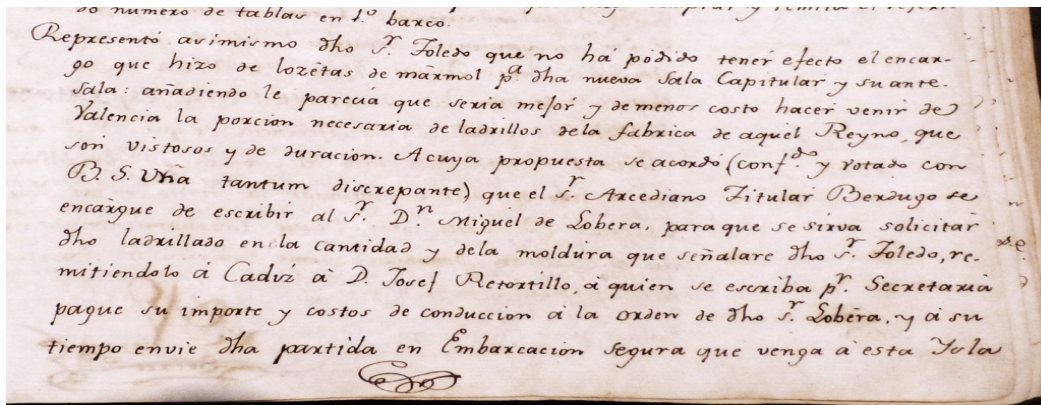 do numero de tablas en 1.º barco.
Representó asimismo dho S.r Toledo que no há pòdido tener efecto el encar-
go que hizo de lozetas de màrmol p.a dha nueva Sala Capitular y su ante-
sala: añadiendo le parecìa que seria mejor y de menos costo hacer venir de
Valencia la porcion necesaria de ladrillos dela fabrica de aquel Reyno, que
son vistosos y de duracion. A cuya propuesta se acordó (conf.do y votado con
B. S. Vña tantum discrepante) que el S.r Arcediano Titular Berdugo se
encargue de escribir al S.r D.n Miguel de Lobera, para que se sirva solicitar
dho ladrillado en la cantidad y dela moldura que señalare dho S.r Toledo, re-
mitiendolo à Cadiz à D. Josef Retortillo, à quien se escriba p.r Secretaria
pague su importe y costos de conduccion à la orden de dho S.r Lobera, y à su
tiempo envie dha partida en Embarcacion segura que venga à esta Ysla